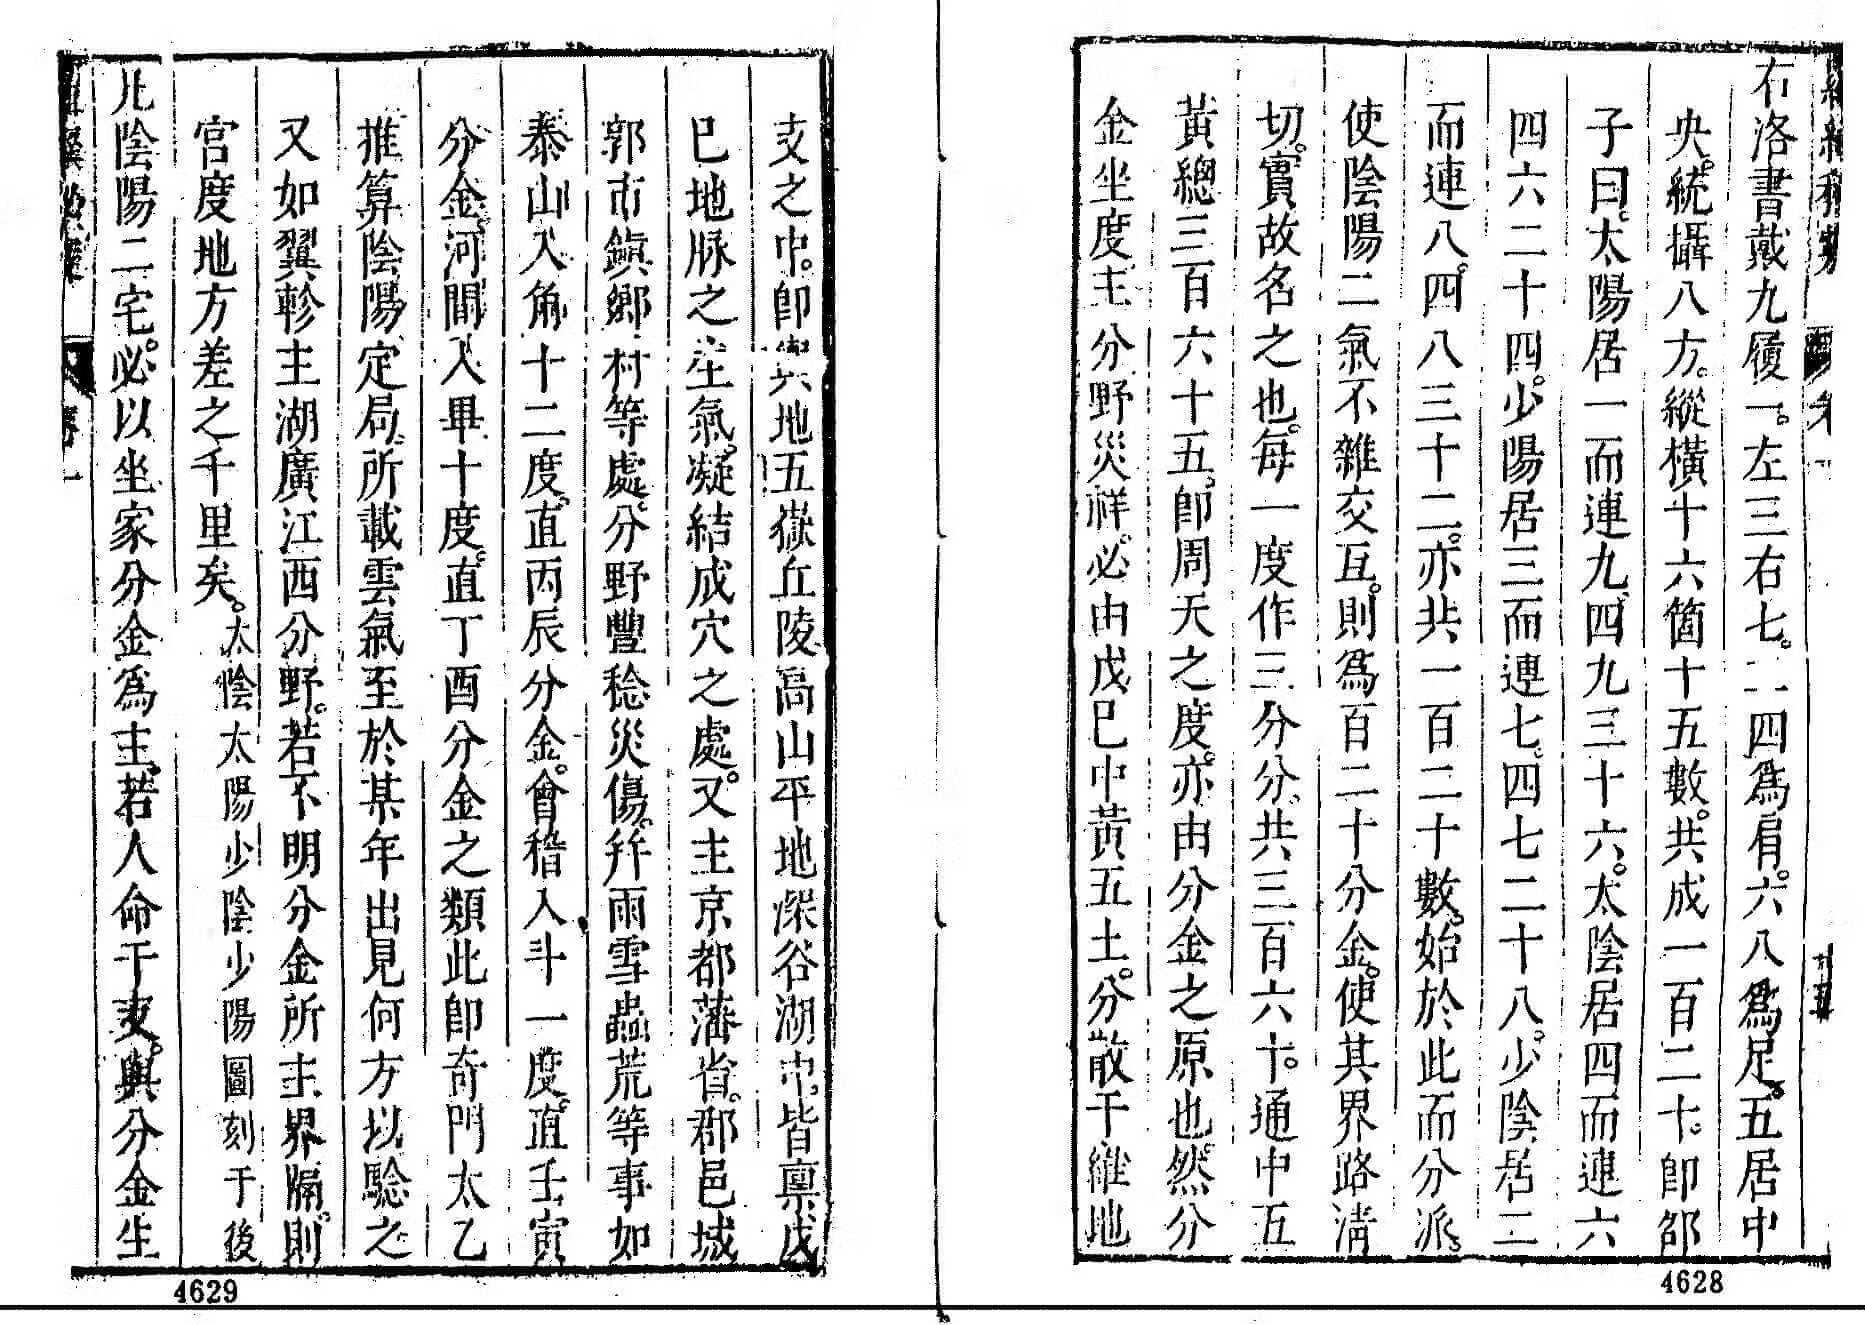 右洛書戴九履一。左三右七。二四爲肩。六八爲足。五居中
央。統攝八方。縱橫十六箇十五數。共成一百二十。卽邵
子曰。太陽居一而連九、四九三十六。太陰居四而連六
四六二十四。少陽居三而連七。四七二十八。少陰居二
而連八。四八三十二。亦共一百二十數。始於此而分派。
使陰陽二氣不雜交互。則爲百二十分金。使其界路清
切。實故名之也。每一度作三分分、共三百六十。通中五
黃總三百六十五。卽周天之度。亦由分金之原也。然分
金坐度主分野災祥。必由戊巳中黃五土。分散干維地
支之中。卽輿地五嶽丘陵高山平地深谷湖中。皆稟戊
巳地脉之生氣。凝結成穴之處。又主京都藩省。郡邑城
郭市鎮鄉村等處。分野豐稔災傷。幷雨雪蟲荒等事如
泰山入角十二度。直丙辰分金。會稽入斗一度。直壬寅
分金。河間入畢十度。直丁酉分金之類此卽奇門太乙
推算陰陽、定局、所載雲氣至於某年出見何方以驗之
又如翼軫主湖廣江西分野。若不明分金所主界隔。則
宮度地方差之千里矣。太陰太陽少陰少陽圖刻于後
凡陰陽二宅。必以坐家分金爲主。若人命干支。與分金生
卷一
4629
4628